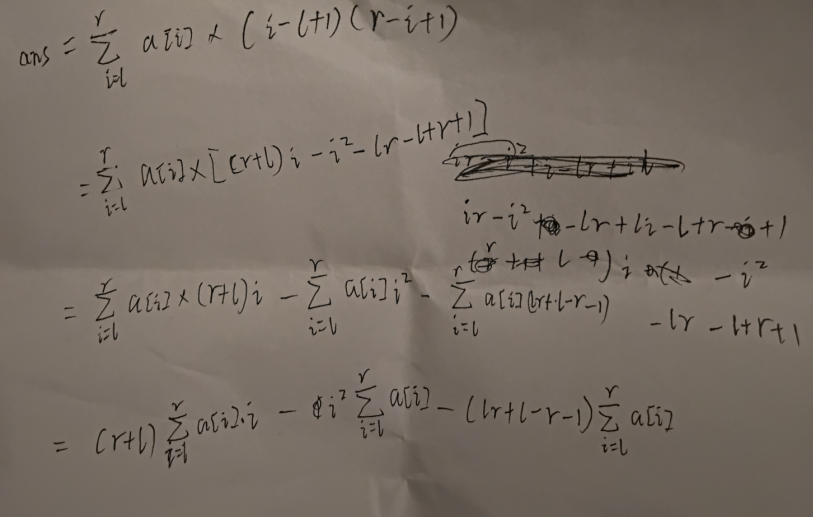 ans = Σ_{i=l}^{r} a[i] × (i-l+1)(r-i+1)
= Σ_{i=l}^{r} a[i]×[(r+l)i - i² - lr - l+r+1]
ir-i² -lr+li-l+r +1
i - i²
-lr - l+r+1
= Σ_{i=l}^{r} a[i]×(r+l)i - Σ_{i=l}^{r} a[i]i² - Σ_{i=l}^{r} a[i](lr+l-r-1)
= (r+l) Σ_{i=l}^{r} a[i]·i - i² Σ_{i=l}^{r} a[i] - (lr+l-r-1) Σ_{i=l}^{r} a[i]